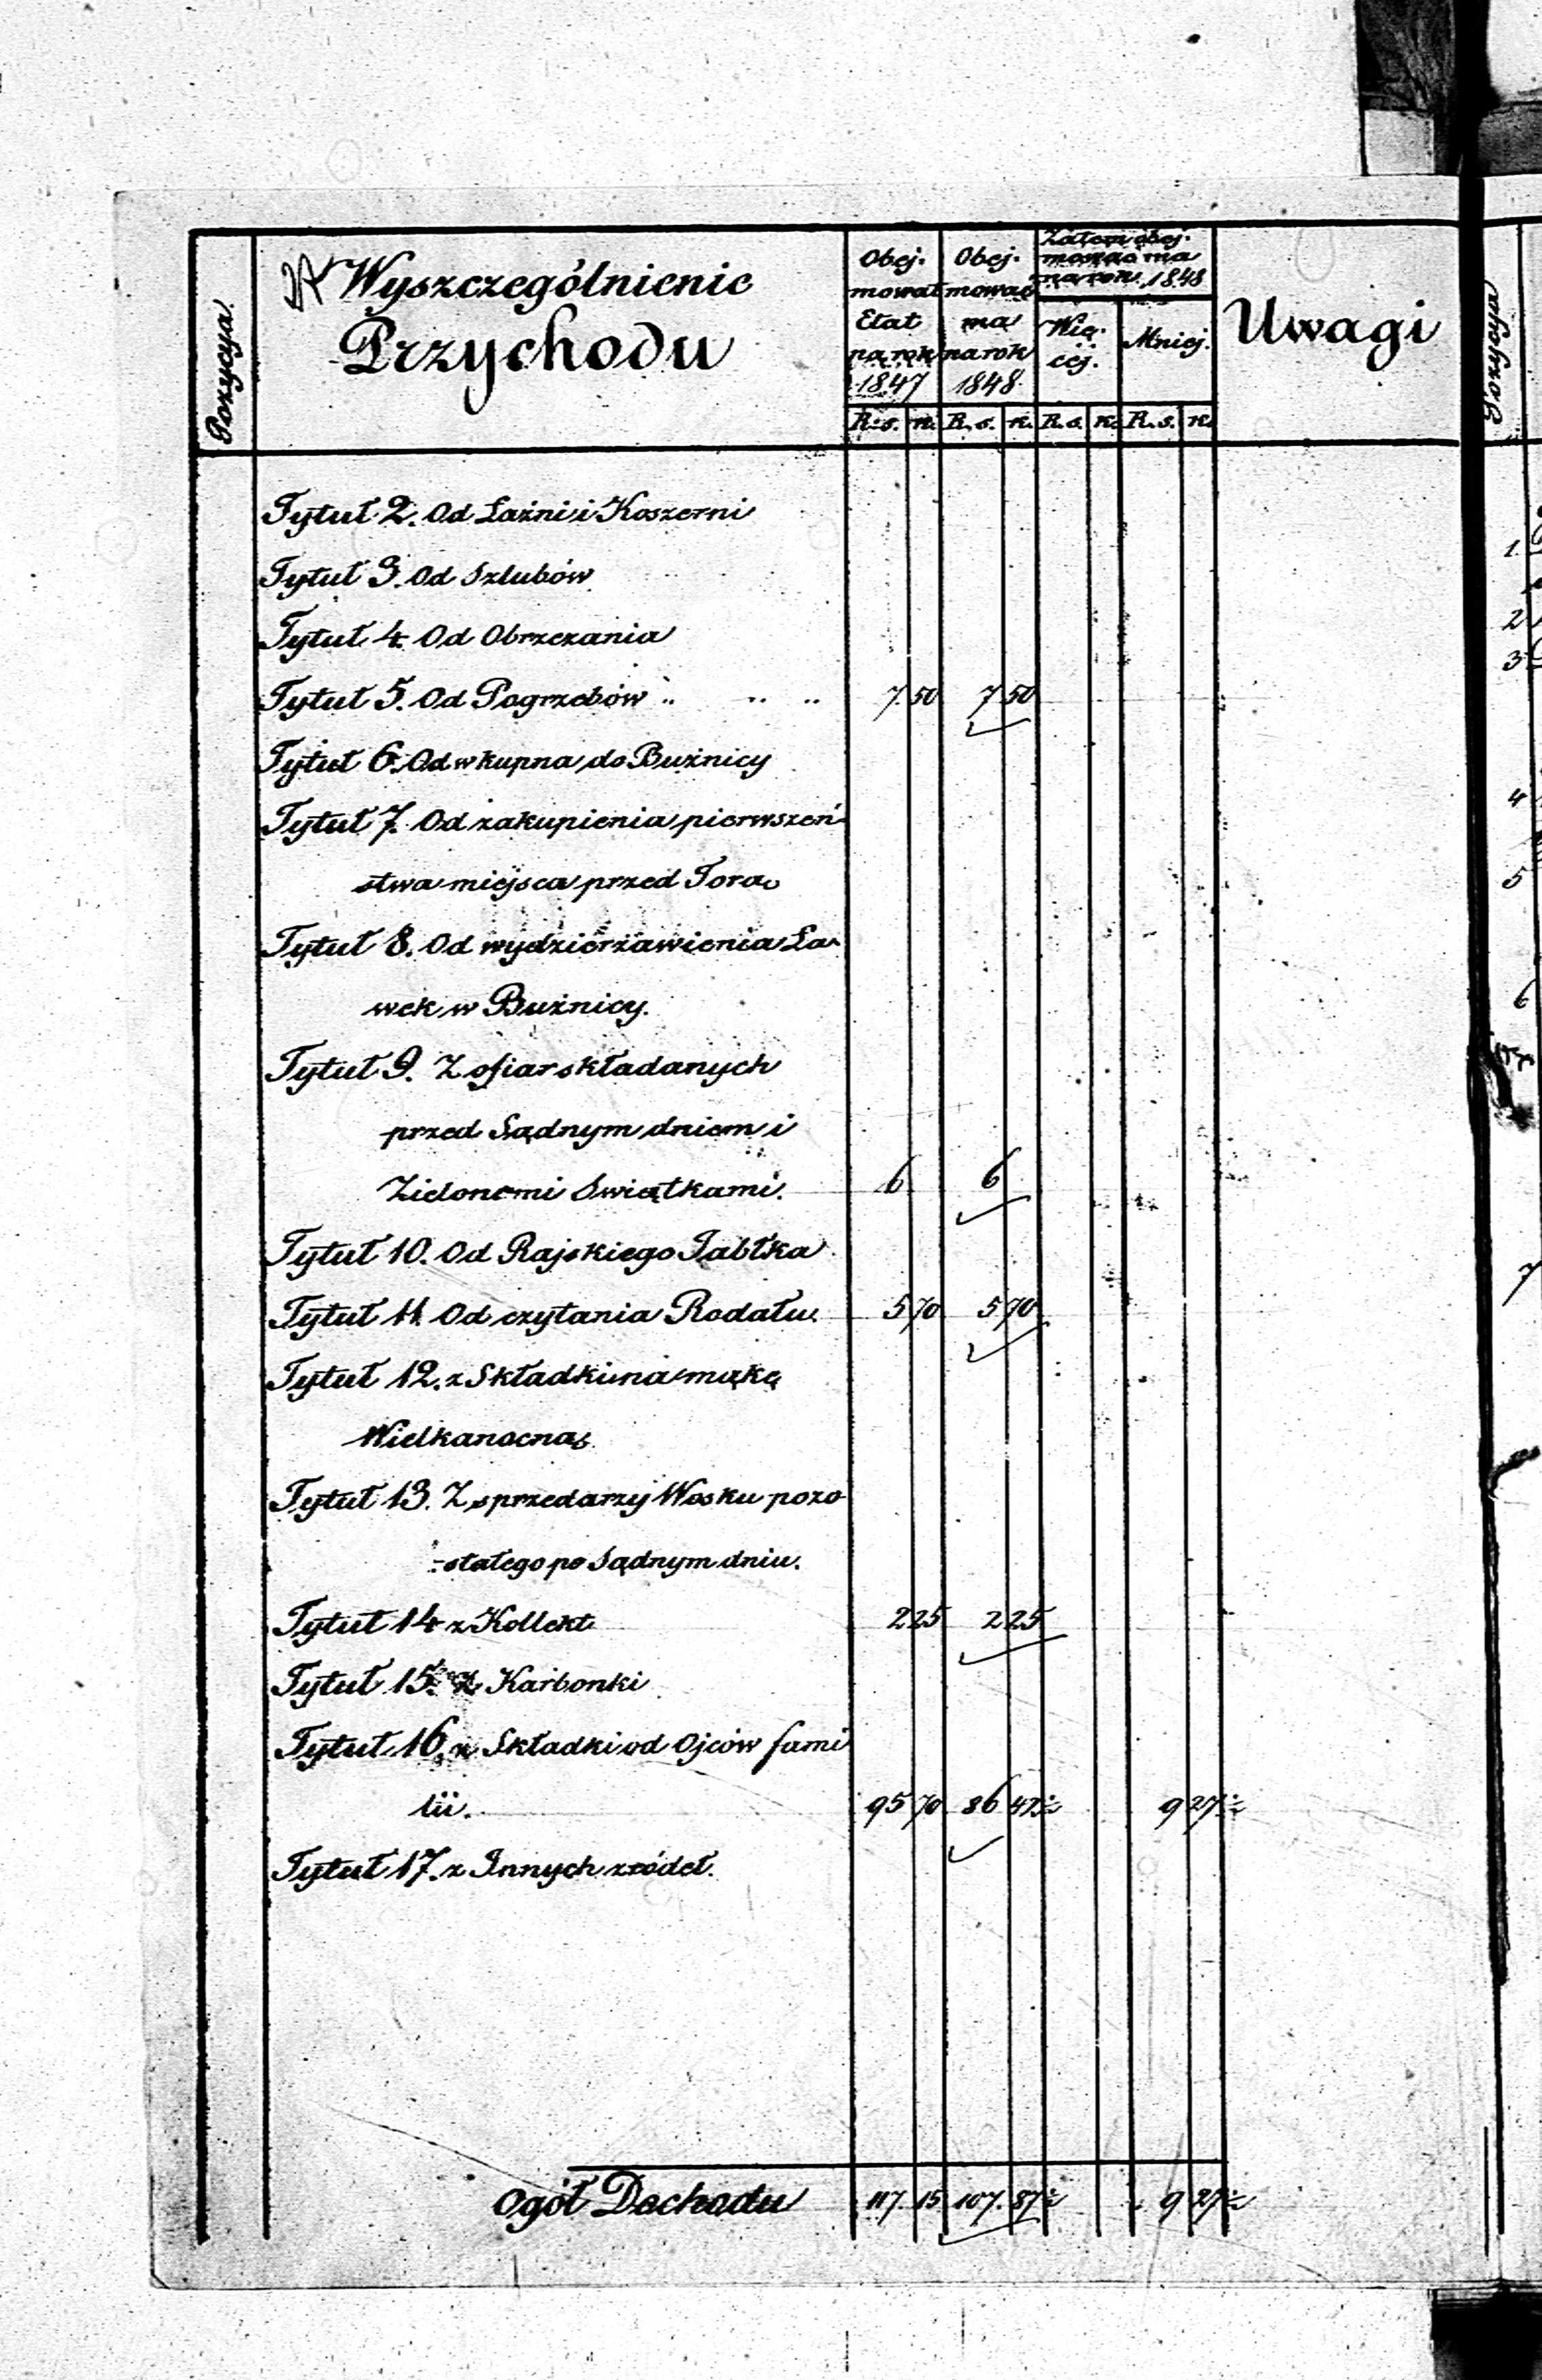 Pozycya.
Wyszczególnienie
Przychodu
Obej-
mował
Etat
na rok
1847
Obej-
mować
ma
na rok
1848
Zatem obej-
mować ma
na rok 1848
Wię-
cej.
Mniej.
Uwagi
R. s. k. R. s. k. R. s. k. R. s. k.
Tytuł 2. Od Łaźni i Koszerni
Tytuł 3. Od Szlubów
Tytuł 4. Od Obrzezania
Tytuł 5. Od Pogrzebów 7 50 7 50
Tytuł 6. Od wkupna do Bużnicy
Tytuł 7. Od zakupienia pierwszeń-
stwa miejsca przed Torą
Tytuł 8. Od wydzierżawienia Ła-
wek w Bużnicy.
Tytuł 9. Z ofiar składanych
przed Sądnym dniem i
Zielonemi Swiątkami. 6 6
Tytuł 10. Od Rajskiego Jabłka
Tytuł 11. Od czytania Rodału. 5 70 5 70
Tytuł 12. z Składki na mąkę
Wielkanocną
Tytuł 13. Z sprzedarzy Wosku pozo
-stałego po Sądnym dniu.
Tytuł 14 z Kollekt 2 25 2 25
Tytuł 15. z Karbonki
Tytuł 16. z Składki od Ojców fami
lii. 95 70 86 42½ 9 27½
Tytuł 17. z Innych zródeł.
Ogół Dochodu 117. 15 107. 87½ 9 27½
Pozycya
1
2
3
4
5
6
7